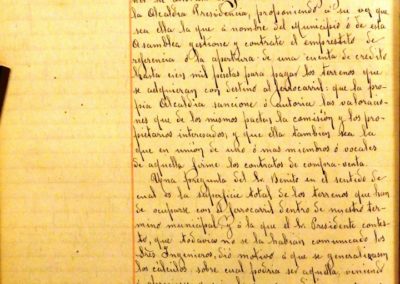 la Alcaldia Presidencia, proponiendo á su vez que
sea ella la que á nombre del Municipio ó de esta
Asamblea gestione y contrate el empréstito de
referencia ó la apertura de una cuenta de credito
hasta cien mil pesetas para pagar los terrenos que
se adquieran con destino al ferrocarril: que la pro
pia Alcaldia sancione ó autorice las valoracio
nes que de los mismos pacten la comisión y los pro
pietarios interesados, y que ella tambien sea la
que en unión de uno ó mas miembros ó vocales
de aquella firme los contratos de compra-venta.
Una pregunta del Sr. Benito en el sentido de
cual es la superficie total de los terrenos que han
de ocuparse con el ferrocarril dentro de nuestro tér-
mino municipal, y á la que el Sr. Presidente contes-
tó, que todavia no se la habian comunicado los
Sres Ingenieros, dió motivo á que se generalizasen
los cálculos sobre cual podria ser aquella, viniendo